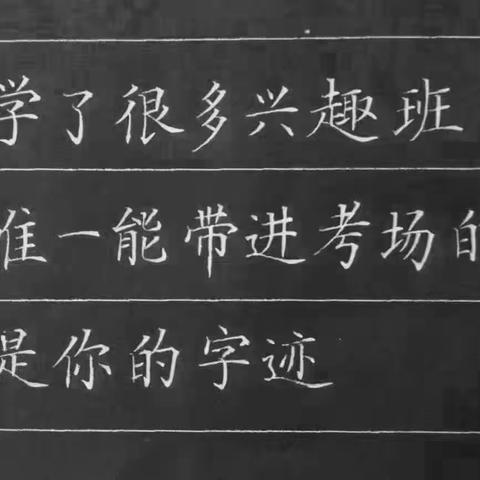 学了很多兴趣班
唯一能带进考场的
是你的字迹